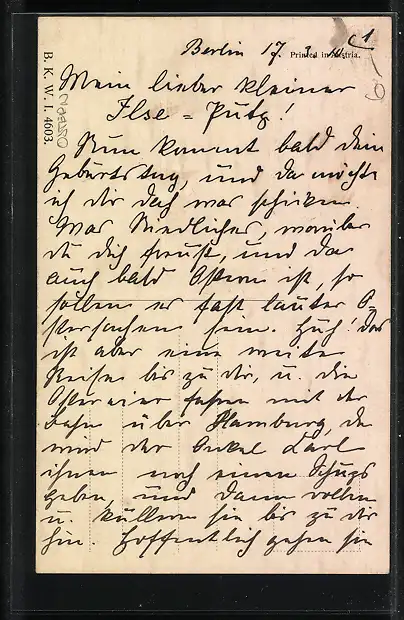 Berlin 17. 3.
1
Printed in Austria.
B. K. W. I. 4603.
Mein lieber kleiner
Ilse = Putz!
Nun kommt bald dein
Geburtstag, und da möchte
ich dir doch was schicken.
Was Niedliches, worüber
du dich freust, und da
auch bald Ostern ist, so
sollen es fast lauter O-
stersachen sein. Huh! das
ist aber eine weite
Reise bis zu dir, u. die
Ostereier fahren mit der
Bahn über Hamburg, da
wird der Onkel Karl
ihnen noch einen Schups
geben, und dann rollen
u. kullern sie bis zu dir
hin. Hoffentlich gehen sie